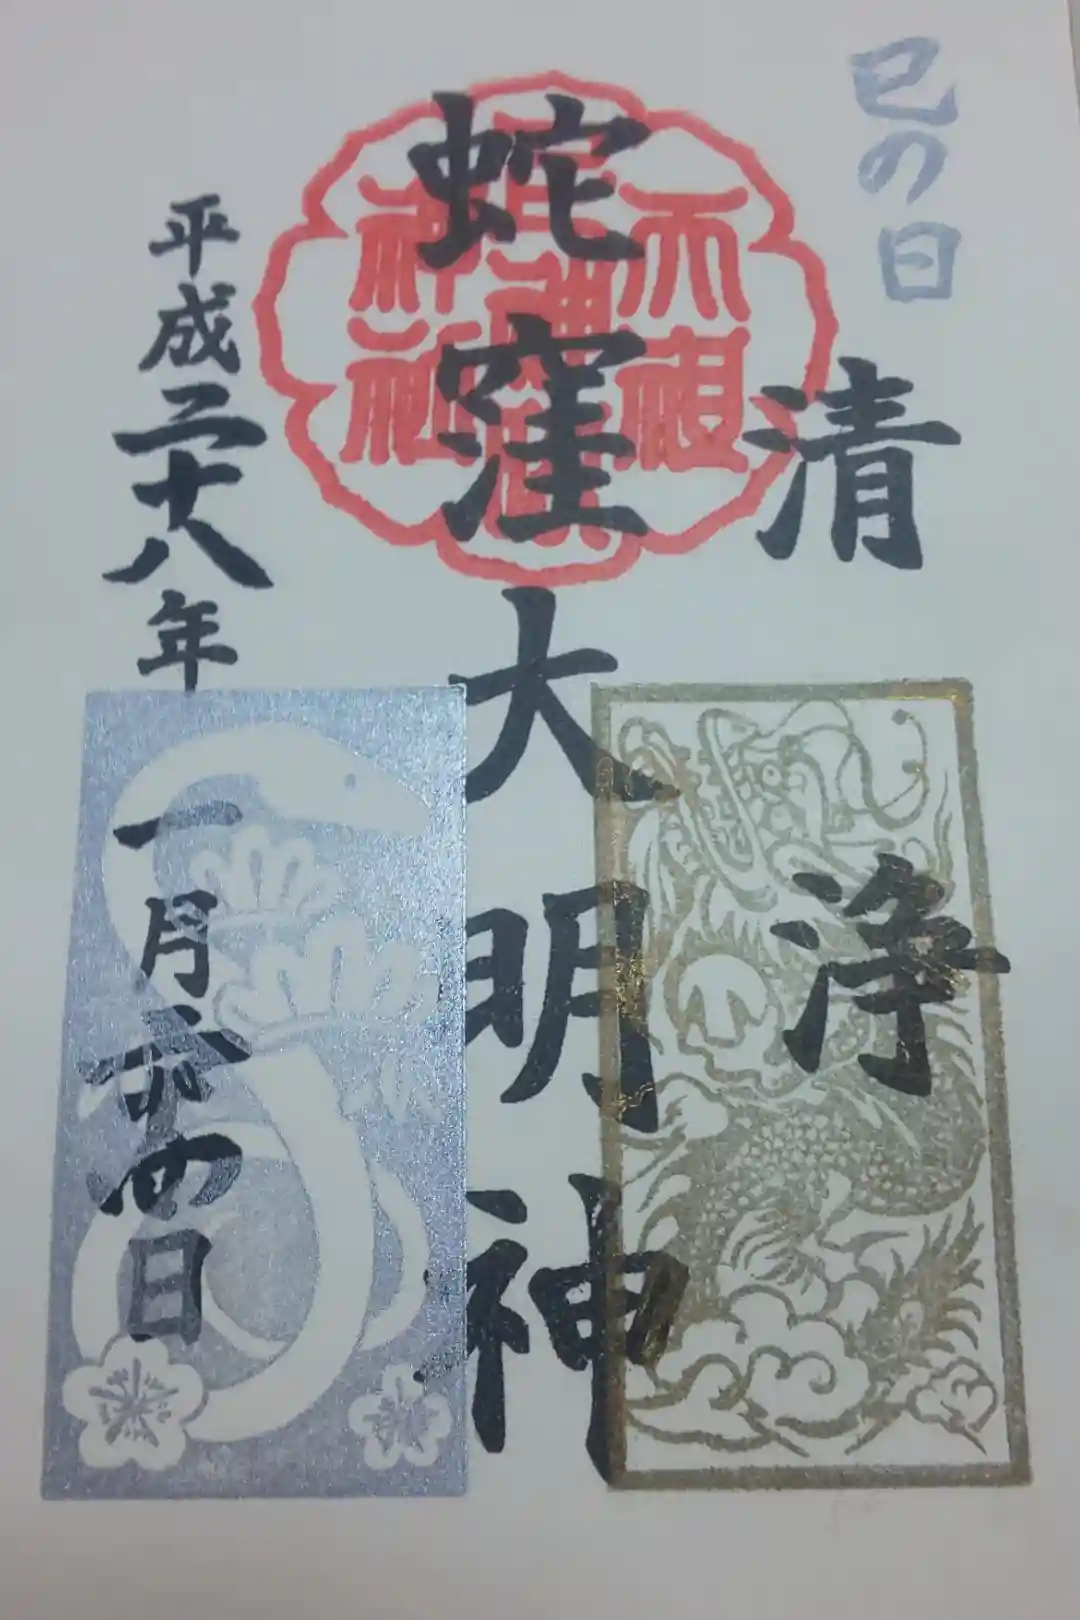 巳の日
清浄
蛇窪大明神
天祖
神社
平成二十八年
一月二十四日